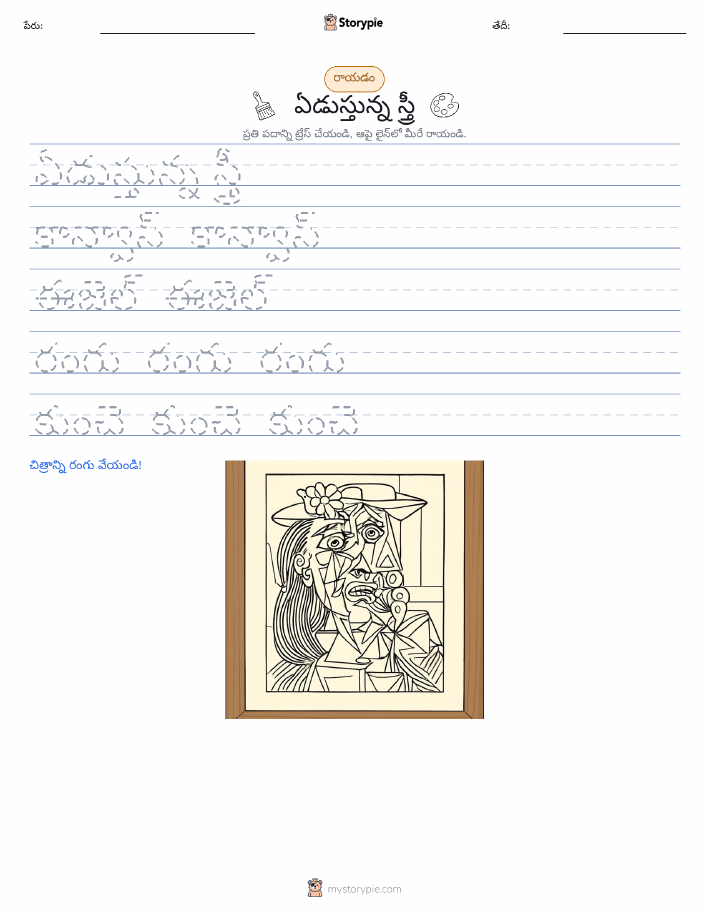 పేరు: Storypie తేదీ:
రాయడం
ఏడుస్తున్న స్త్రీ
ప్రతి పదాన్ని ట్రేస్ చేయండి, ఆపై లైన్‌లో మీరే రాయండి.
ఏడుస్తున్న స్త్రీ
కాన్వాస్ కాన్వాస్
ఈజెల్ ఈజెల్
రంగు రంగు రంగు
కుంచె కుంచె కుంచె
చిత్రాన్ని రంగు వేయండి!
mystorypie.com